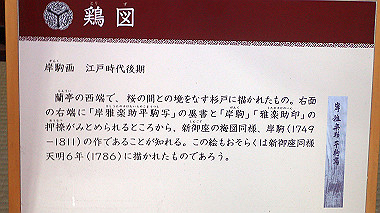 鶏図
岸駒画 江戸時代後期
蘭亭の西端で、桜の間との境をなす杉戸に描かれたもの。右面
の右端に「岸雅楽助平駒写」の裏書と「岸駒」「雅楽助印」の
押捺がみとめられるところから、新御座の梅図同様、岸駒(1749
-1811)の作であることが知れる。この絵もおそらくは新御座同様
天明6年(1786)に描かれたものであろう。